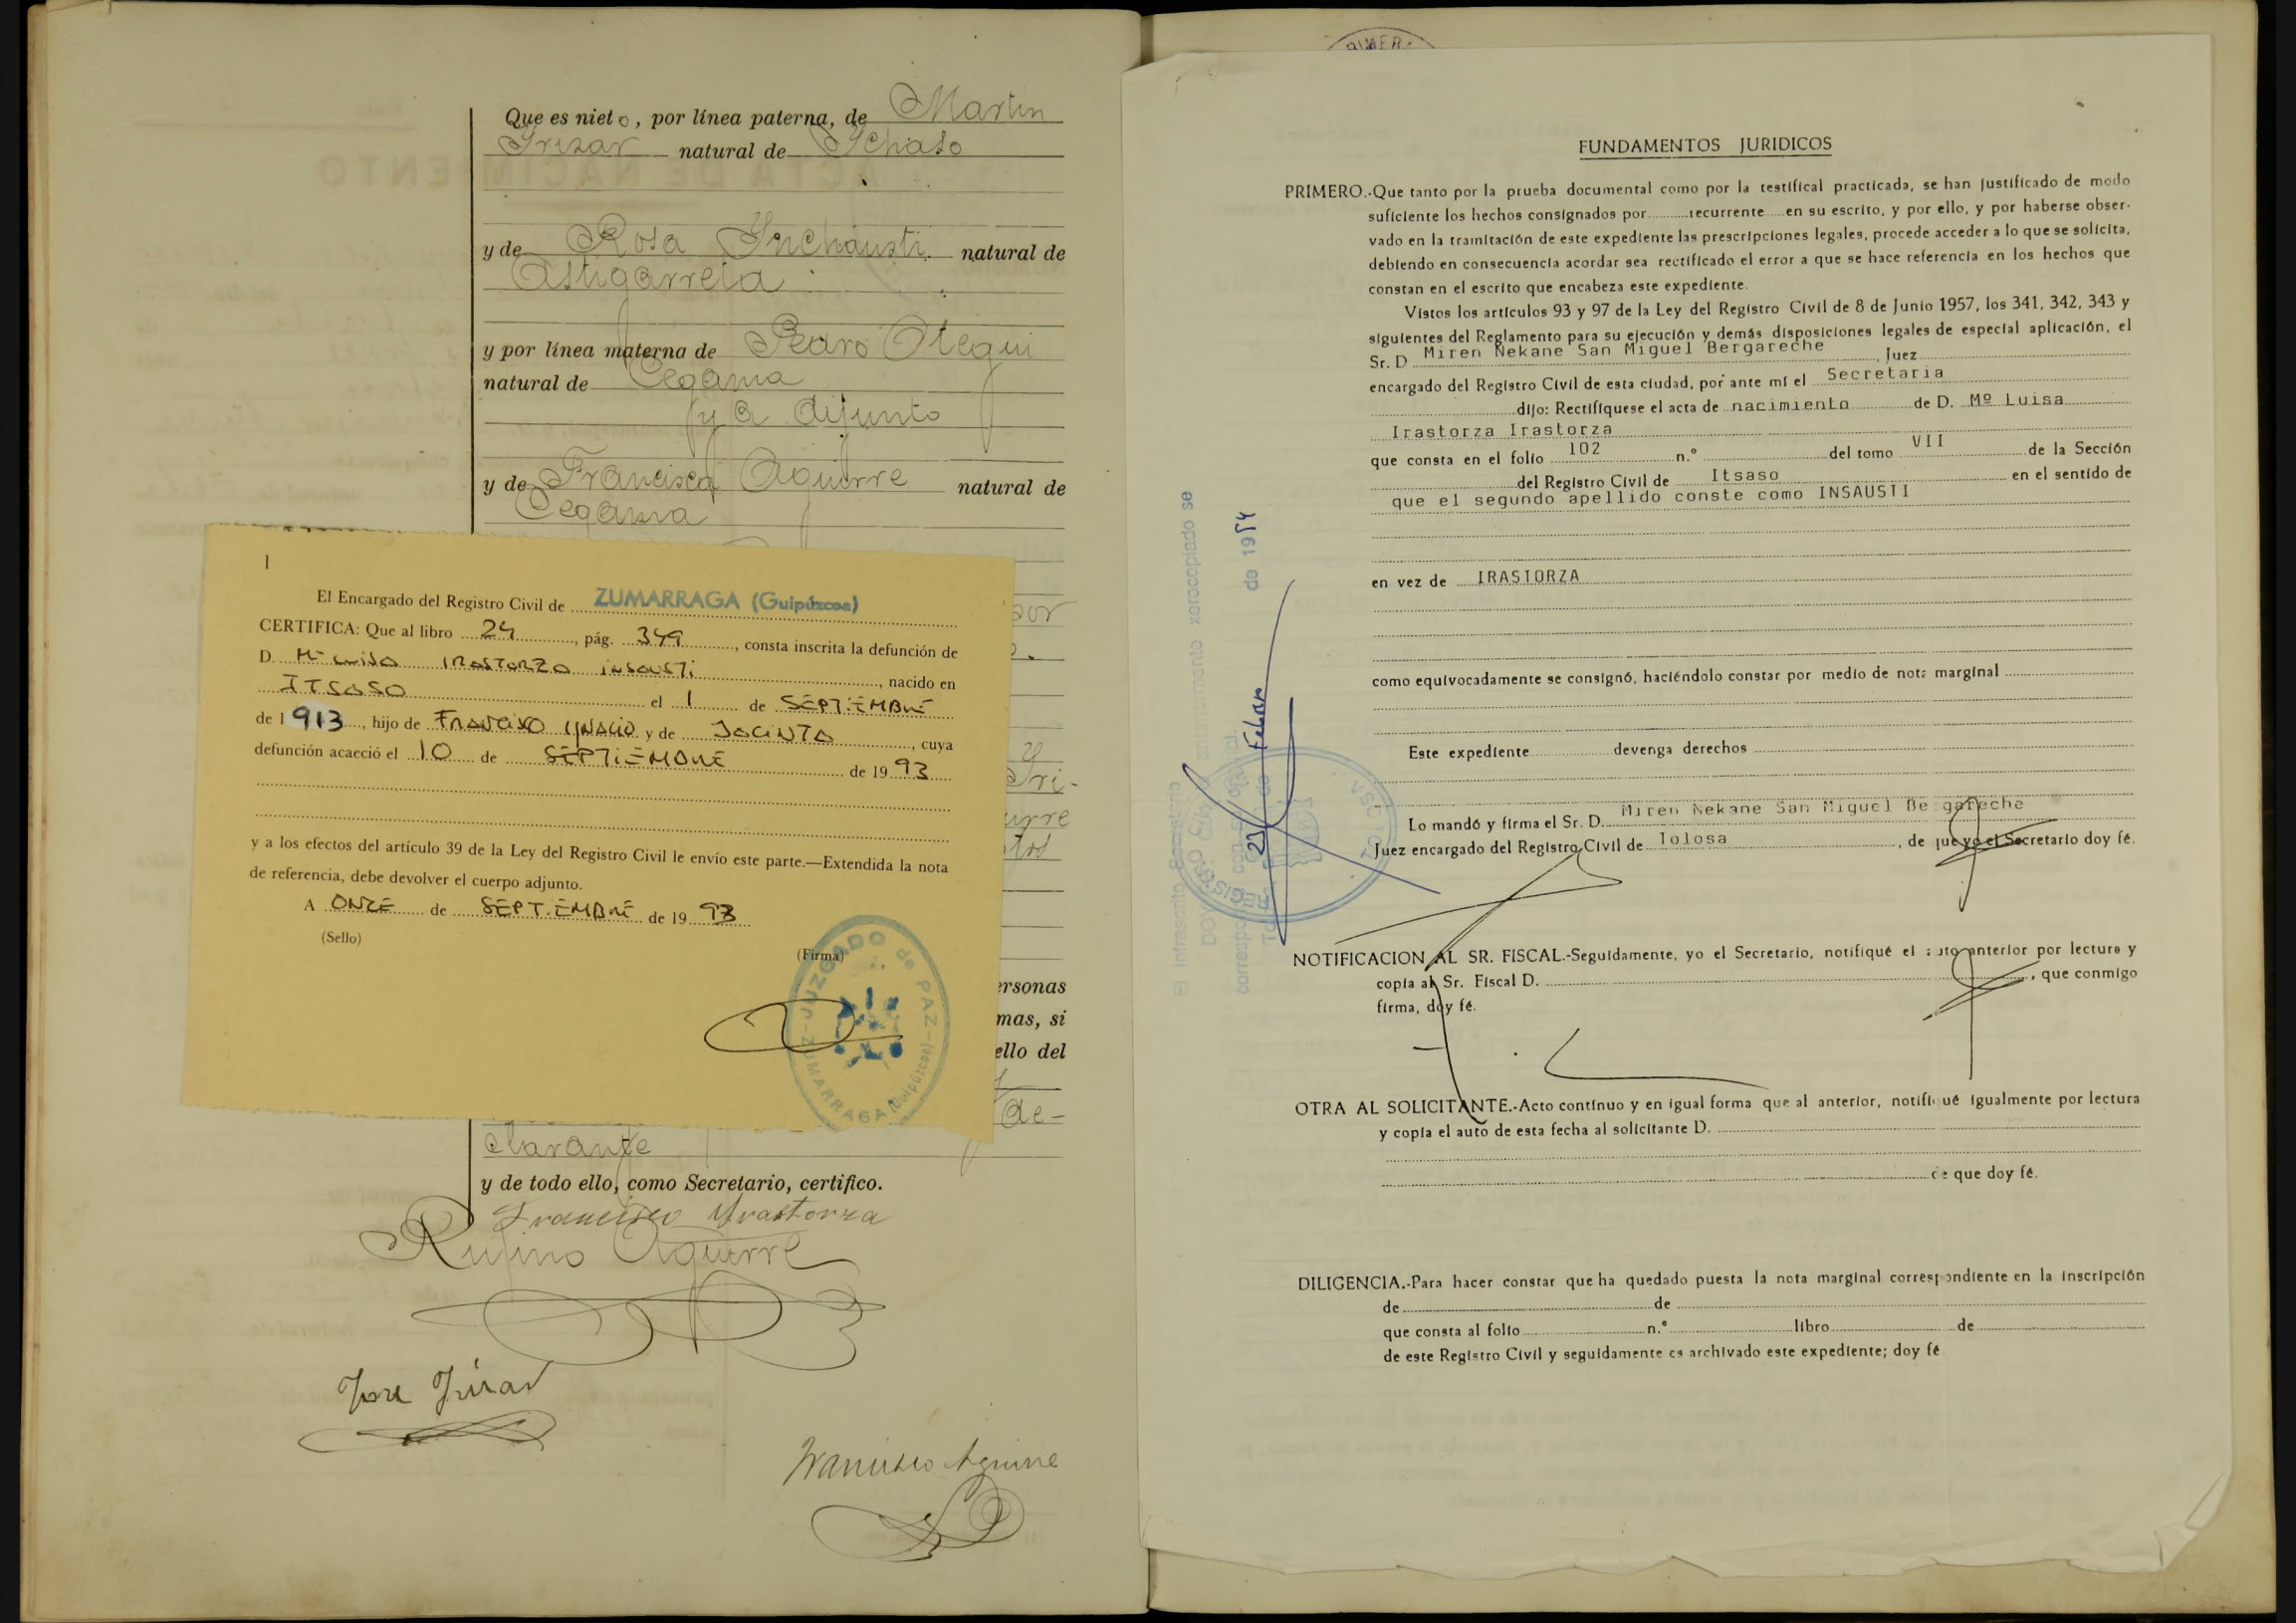 Que es nieto, por línea paterna, de Martin
Irizar natural de Ichaso
y de Rosa Inchausti natural de
Astigarreta
y por línea materna de Pedro Otegui
natural de Cegama
ya difunto
y de Francisca Aguirre natural de
Cegama
1
El Encargado del Registro Civil de ZUMARRAGA (Guipúzcoa)
CERTIFICA: Que al libro 24, pág. 349, consta inscrita la defunción de
D. Mª Luisa IRASTORZA INSAUSTI, nacido en
ITSASO el 1 de SEPTIEMBRE
de 1913, hijo de FRANCISCO IGNACIO y de JACINTA, cuya
defunción acaeció el 10 de SEPTIEMBRE de 1993
y a los efectos del artículo 39 de la Ley del Registro Civil le envío este parte.—Extendida la nota
de referencia, debe devolver el cuerpo adjunto.
A ONCE de SEPTIEMBRE de 1993
(Sello)
(Firma)
JUZGADO de PAZ - ZUMARRAGA (Guipúzcoa)
ri-
urre
ersonas
mas, si
ello del
de-
clarante
y de todo ello, como Secretario, certifico.
Francisco Yrastorza
Rufino Aguirre
Jose Irizar
Francisco Aguirre
FUNDAMENTOS JURIDICOS
PRIMERO.-Que tanto por la prueba documental como por la testifical practicada, se han justificado de modo
suficiente los hechos consignados por recurrente en su escrito, y por ello, y por haberse obser-
vado en la tramitación de este expediente las prescripciones legales, procede acceder a lo que se solicita,
debiendo en consecuencia acordar sea rectificado el error a que se hace referencia en los hechos que
constan en el escrito que encabeza este expediente.
Vistos los artículos 93 y 97 de la Ley del Registro Civil de 8 de Junio 1957, los 341, 342, 343 y
siguientes del Reglamento para su ejecución y demás disposiciones legales de especial aplicación, el
Sr. D Miren Nekane San Miguel Bergareche, Juez
encargado del Registro Civil de esta ciudad, por ante mí el Secretaria
dijo: Rectifíquese el acta de nacimiento de D. Mº Luisa
Irastorza Irastorza
que consta en el folio 102 n.º del tomo VII de la Sección
del Registro Civil de Itsaso en el sentido de
que el segundo apellido conste como INSAUSTI
en vez de IRASTORZA
como equivocadamente se consignó, haciéndolo constar por medio de nota marginal
Este expediente devenga derechos
Lo mandó y firma el Sr. D. Miren Nekane San Miguel Bergareche
Juez encargado del Registro Civil de Tolosa, de que yo el Secretario doy fé.
NOTIFICACION AL SR. FISCAL.-Seguidamente, yo el Secretario, notifiqué el auto anterior por lectura y
copia al Sr. Fiscal D. , que conmigo
firma, doy fé.
OTRA AL SOLICITANTE.-Acto contínuo y en igual forma que al anterior, notifiqué igualmente por lectura
y copia el auto de esta fecha al solicitante D.
de que doy fé.
DILIGENCIA.-Para hacer constar que ha quedado puesta la nota marginal correspondiente en la inscripción
de de
que consta al folio n.º libro de
de este Registro Civil y seguidamente es archivado este expediente; doy fé
El infrascrito Secretario
DOY
xerocopiado se
23 Febrero de 19
REGISTRO